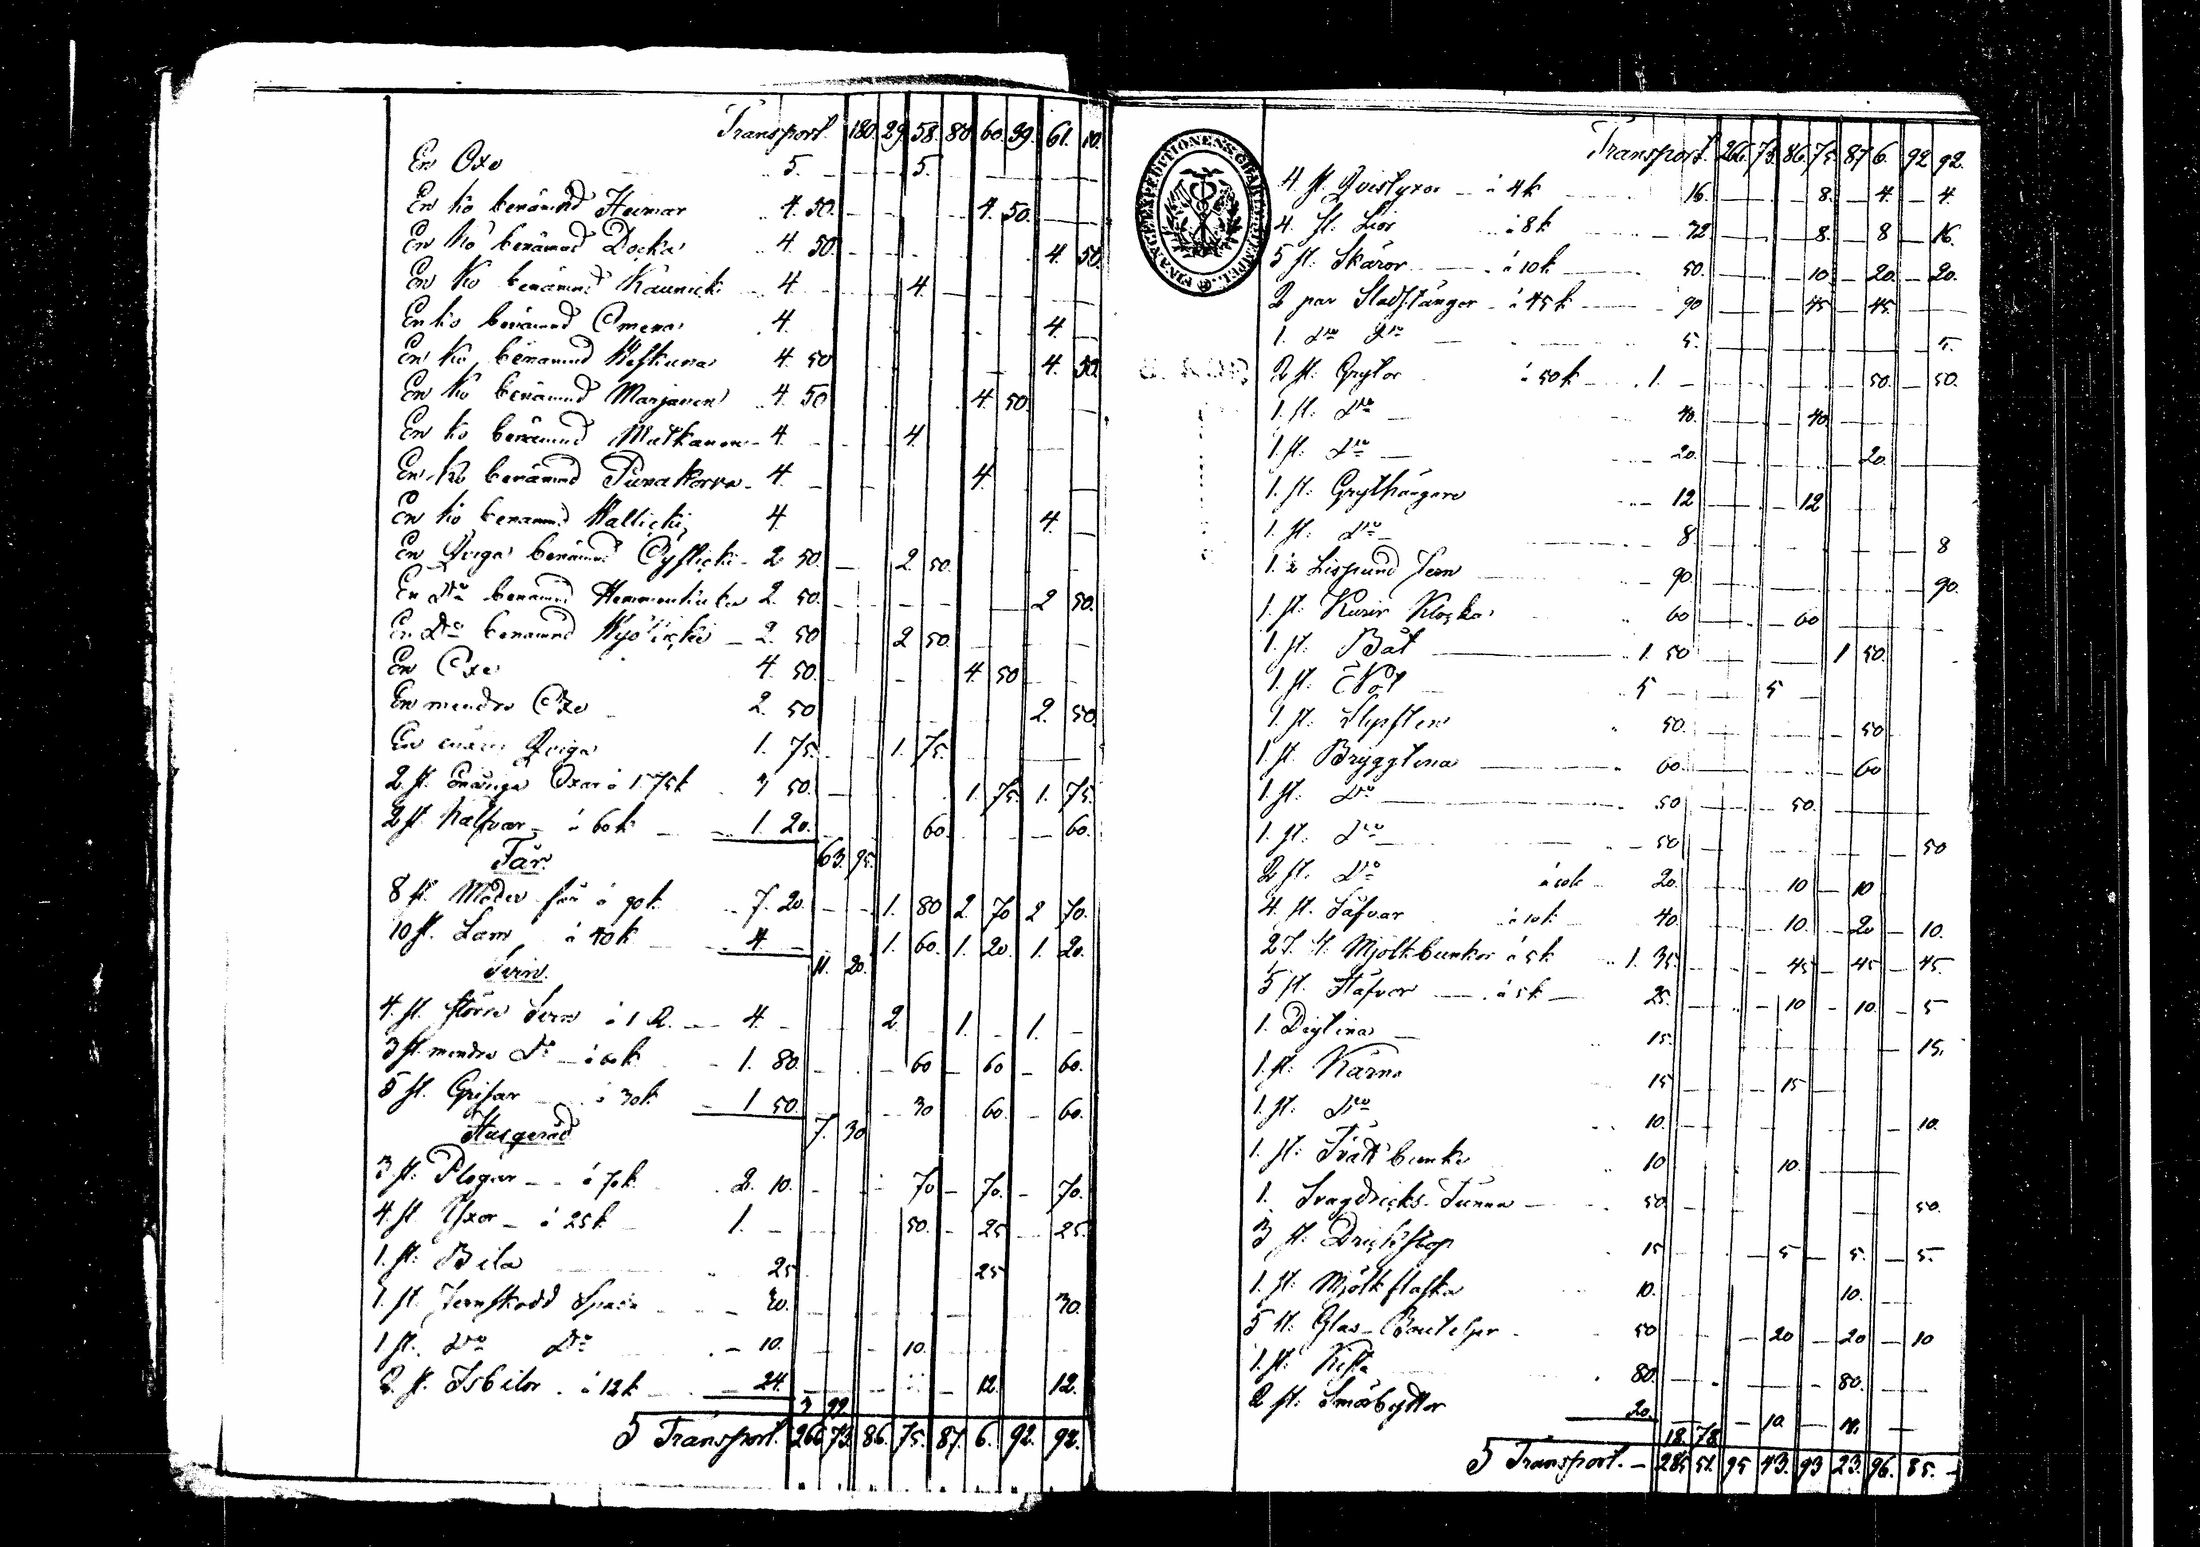 Transport. 180. 29. 58. 80. 60. 39. 61. 10.
En Oxe 5. 5.
En ko benämnd Heimar 4. 50. 4. 50.
En ko benämnd Docka 4 50. 4. 50.
En ko benämnd Kaunicki 4 4.
En ko benämnd Omena 4. 4.
En ko benämnd 4 50 4. 50.
En ko benämnd Marjanen 4. 50 4. 50.
En ko benämnd Matkanen 4. 4.
En ko benämnd Punakorva 4. 4.
En ko benämnd Hallicki 4 4.
En Qviga benämnd 2 50. 2 50.
En Dto benämnd 2. 50. 2 50.
En Dto benämnd 2. 50 2 50.
En Oxe 4. 50. 4. 50
En mindre Oxe 2. 50 2. 50.
En Qviga 1. 75. 1. 75.
2 st. Oxar á 1. 75k 3 50. 1. 75. 1. 75.
2 st. Kalfvar á 60k 1. 20. 60. 60.
Får. 63. 95.
8 st. Moder får á 90k. 7. 20. 1. 80 2. 70 2 70.
10 st. Lam á 40k 4 1. 60. 1. 20. 1. 20.
Svin. 11. 20.
4. st. större Svin á 1 R. 4. 2. 1. 1.
3 st. mindre Dto á 60k 1. 80. 60 60 60.
5 st. Grisar á 30k. 1 50. 30 60. 60.
Husgeråd 7. 30
3 st. Plogar á 70k. 2. 10. 70 70. 70.
4 st. Yxor á 25k 1. 50. 25 25.
1. st. Bila 25 25
1. st. Jernskodd 30. 30.
1 st. Dto Dto 10. 10.
2 st. Isbilor á 12k 24. 12. 12.
3 99.
Transport. 266 73. 86. 75. 87. 6. 92. 92.
FINANCEEXPEDITIONENS CHARTÆ
Transport. 266. 73. 86. 75. 87 6. 92 92.
4 st. Qvistyxor á 4k 16. 8. 4. 4.
4. st. Lior á 8k 32 8. 8 16.
5 st. Skäror á 10k 50. 10. 20. 20.
2 par á 45k 90 45 45.
1. Dto Dto 5. 5.
2 st. Grytor á 50k 1. 50. 50.
1. st. Dto 40. 40.
1. st. Dto 20. 20.
1. st. Grythängare 12 12
1. st. Dto 8. 8
1. Lispund Jern 90. 90.
1. st. Klocka 60 60
1. st. Båt 1. 50 1 50.
1. st. Not 5 5
1. st. Slipsten 50. 50
1 st. Bryggtina 60. 60
1 st. Dto 50 50.
1. st. Dto 50 50
2 st. Dto á 10k 20. 10 10
4. st. Såfvar á 10k 40. 10. 20 10.
27. st. Mjölkbunkor á 5k 1. 35. 45 45 45.
5 st. Stäfvor á 5k 25. 10 10. 5
1. Degtina 15. 15.
1. st. Kärna 15 15
1. st. Dto 10. 10.
1. st. Tvätt bunke 10 10.
1. Svagdricks-Tunna 50. 50.
3 st. Dricksstop 15 5 5. 5.
1. st. Mjölkflaska 10. 10.
5 st. Glas-Bouteljer 50 20 20 10
1. st. Kista 80. 80.
2 st. Smörbyttor 20. 10 10.
18. 78
Transport. 285 51. 95 43. 93 23. 96. 85.